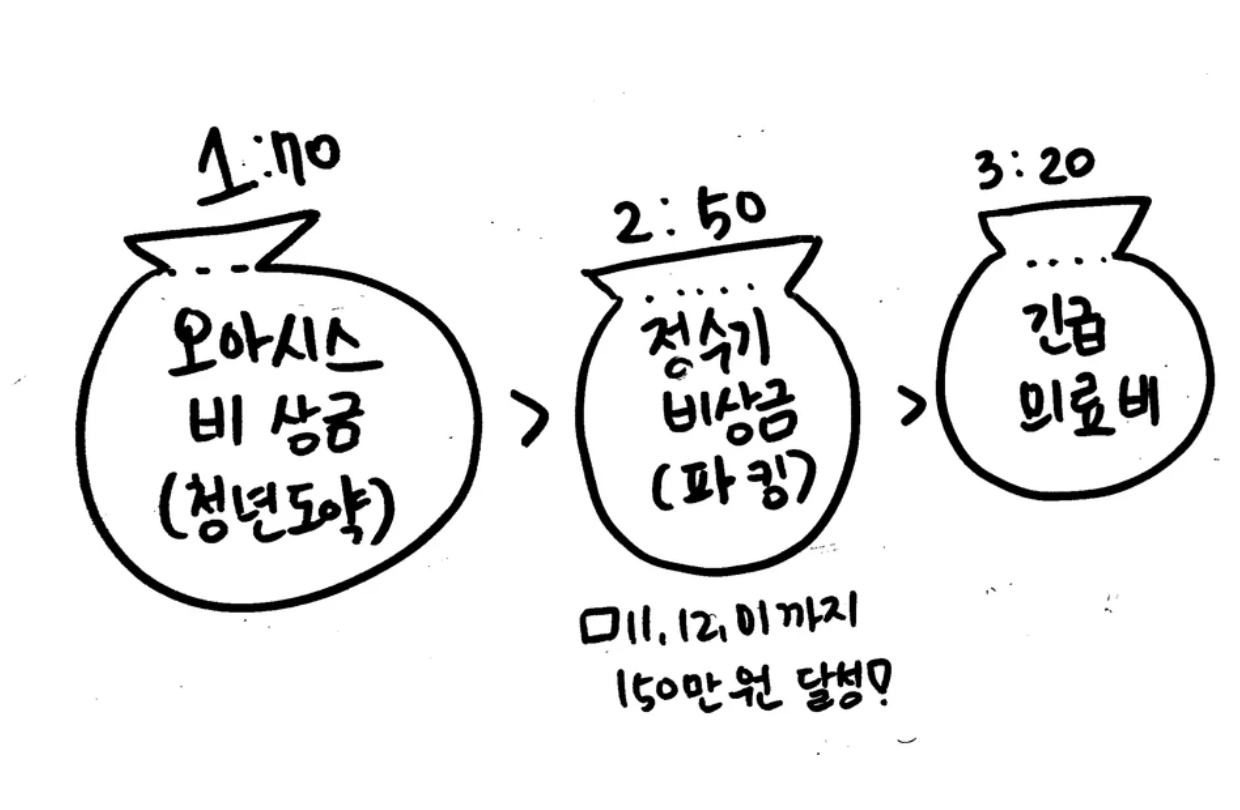 1:70
오아시스
비상금
(청년도약)
>
2:50
정수기
비상금
(파킹)
>
3:20
긴급
의료비
□11,12,01까지
150만원 달성!